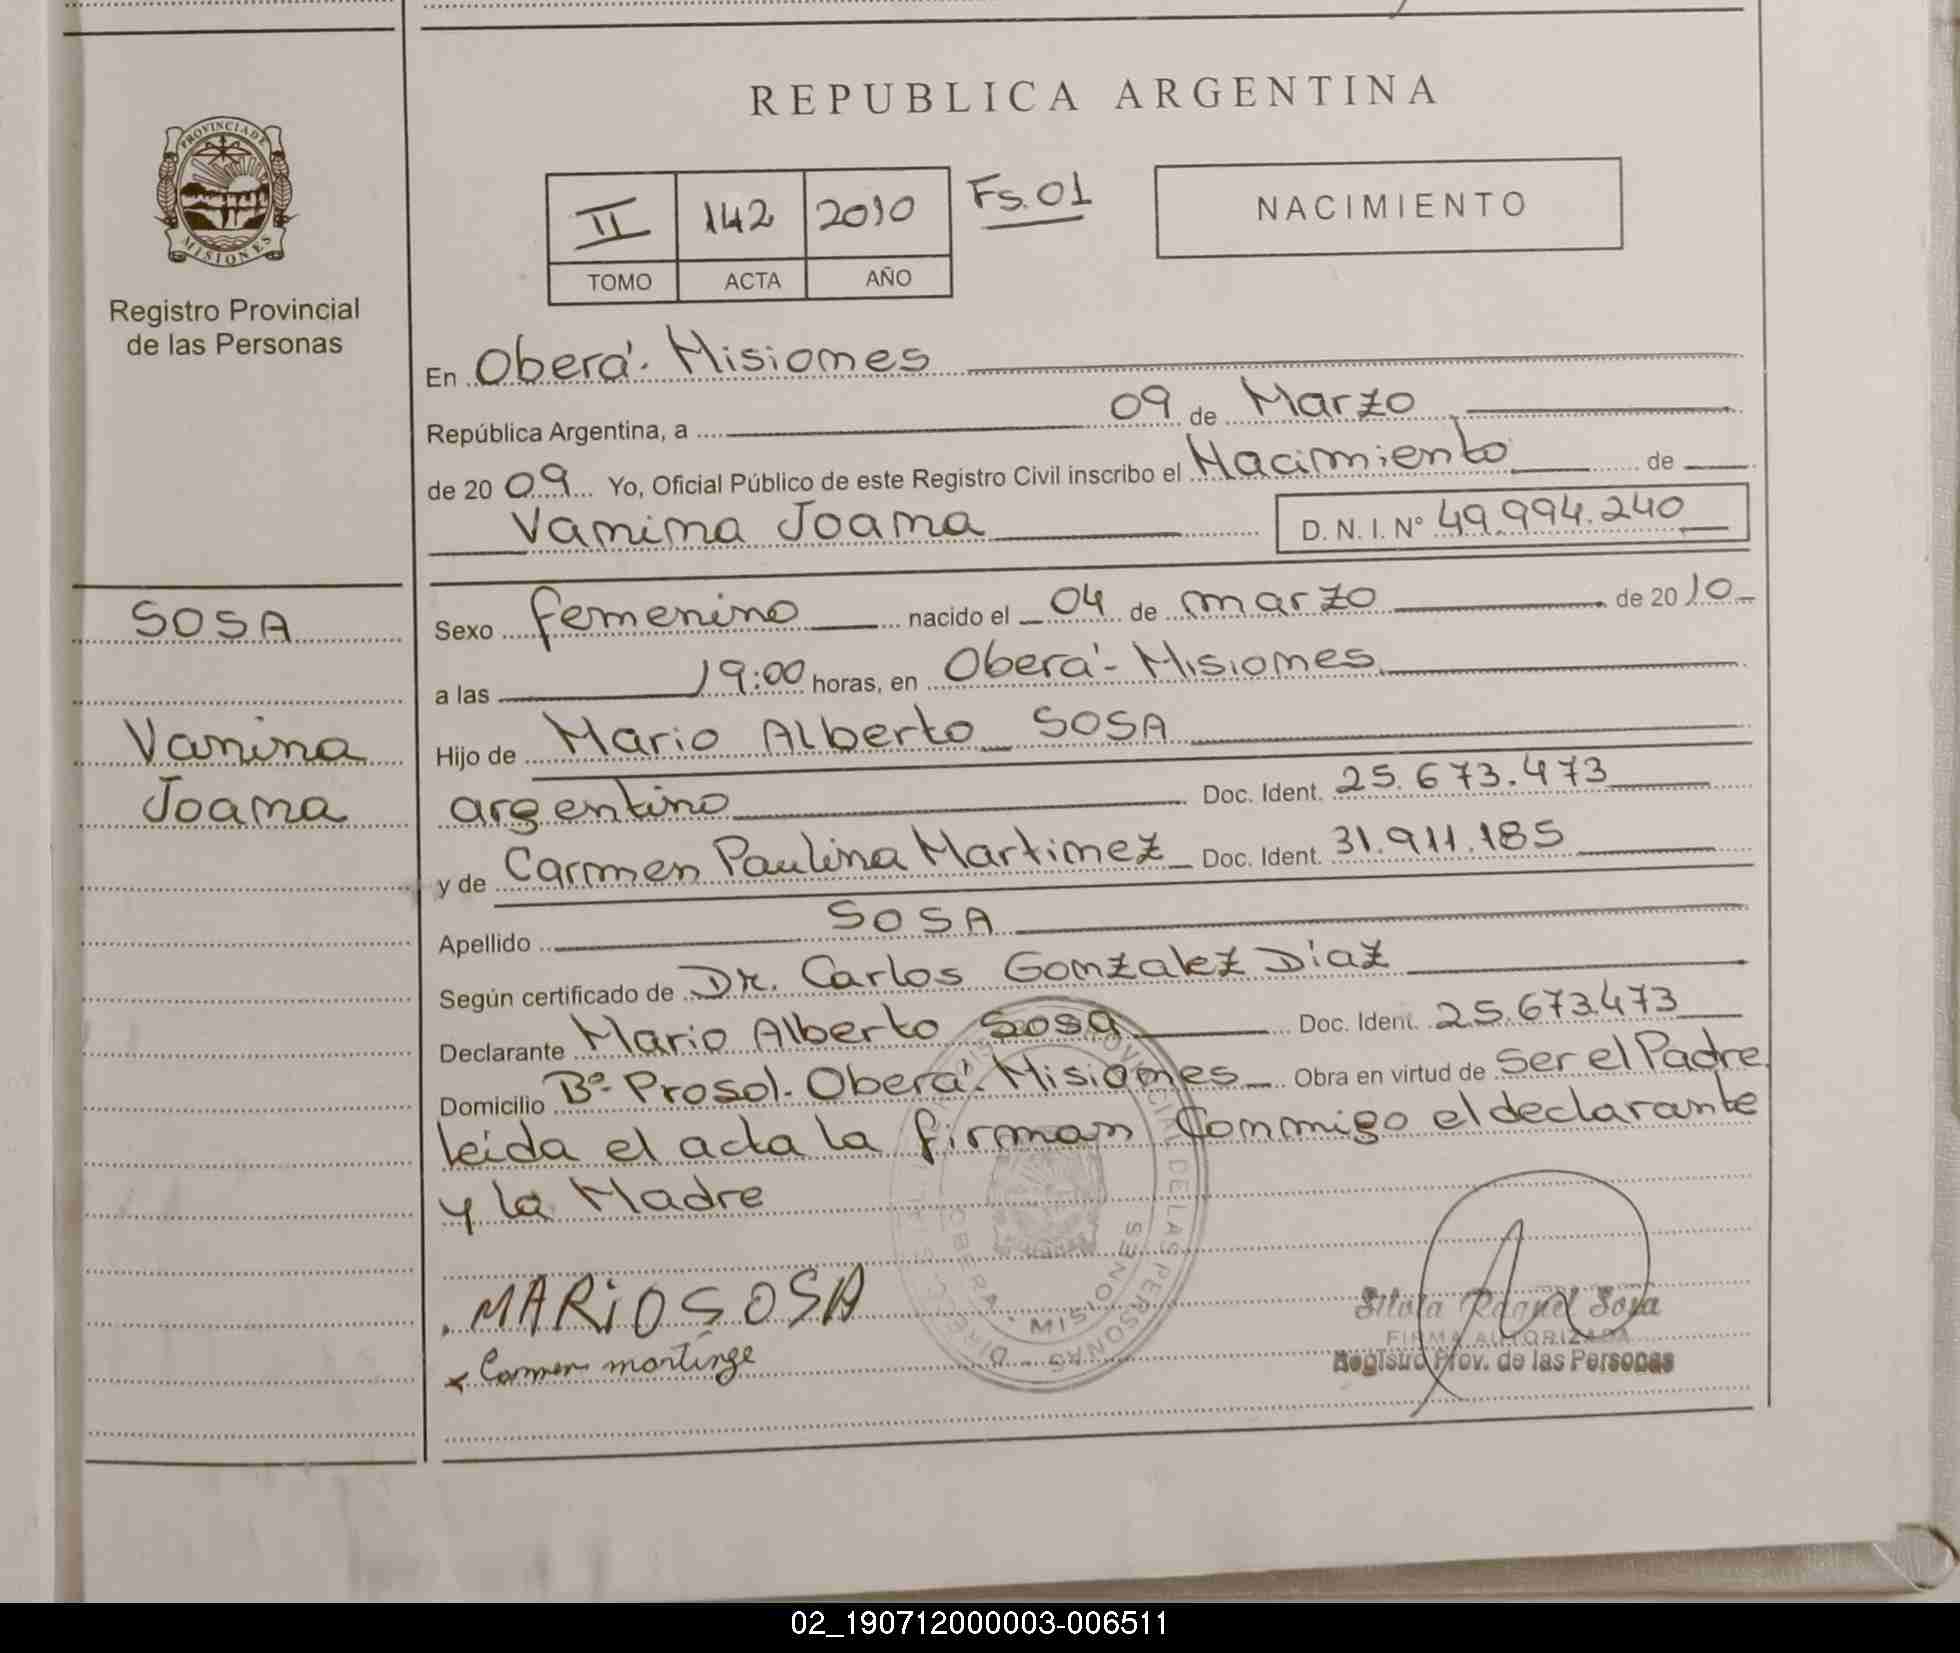 REPUBLICA ARGENTINA
PROVINCIA DE
MISIONES
Registro Provincial
de las Personas
II 142 2010 Fs. 01
TOMO ACTA AÑO
NACIMIENTO
En Oberá. Misiones
República Argentina, a 09 de Marzo
de 2009 Yo, Oficial Público de este Registro Civil inscribo el Nacimiento de
Vanina Joana D. N. I. Nº 49.994.240
SOSA
Vanina
Joana
Sexo femenino nacido el 04 de marzo de 2010
a las 19:00 horas, en Oberá - Misiones
Hijo de Mario Alberto SOSA
argentino Doc. Ident. 25.673.473
y de Carmen Paulina Martinez Doc. Ident. 31.911.185
Apellido SOSA
Según certificado de Dr. Carlos Gonzalez Diaz
Declarante Mario Alberto Sosa Doc. Ident. 25.673473
Domicilio Bº Prosol. Oberá. Misiones Obra en virtud de Ser el Padre
leida el acta la firman Conmigo el declarante
y la Madre
MARiO SOSA
x Carmen
Raquel Sosa
FIRMA AUTORIZADA
Registro Prov. de las Personas
DE LAS PERSONAS
OBERA - MISIONES
02_190712000003-006511